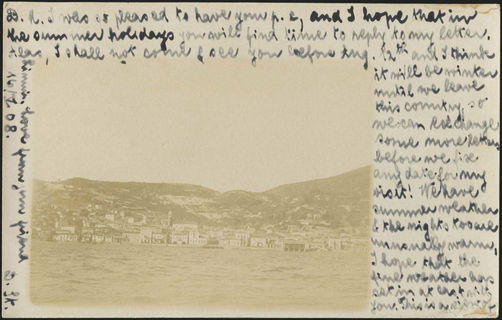 D. R. I was so pleased to have your p. c, and I hope that in
the summer holidays you will find time to reply to my letter.
Alas, I shall not come & see you before Aug. 12th and I think
it will be winter
until we leave
this country, so
we can exchange
some more letters
before we fix
any date for my
visit! We have
summer weather
& the nights too are
unusually warm,
I hope that the
fine weather has
set in at last with
you. This is a view of
from your friend
16/12 08.